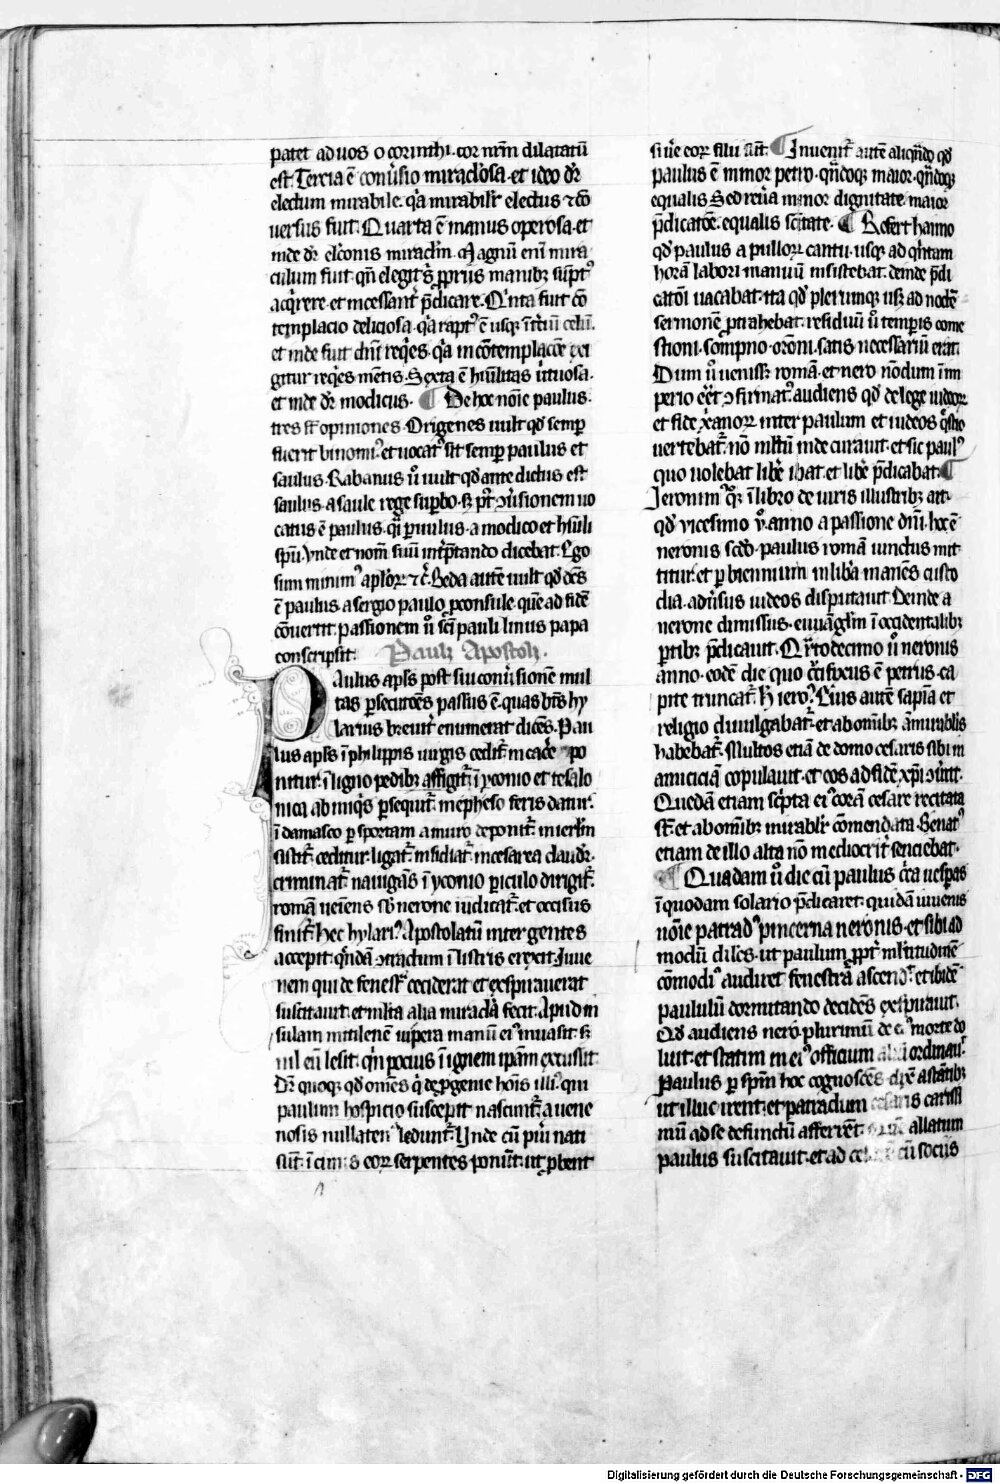 patet ad uos o corinthi. cor nr̄m dilatatū
est. Tercia ē conu̓sio miraclosa. et ideo dr̄
electum mirabile. q̓a mirabilit̓ electus ⁊ cō
uersus fuit. Quarta ē manus operosa. et
inde dr̄ elc̄onis miraclm̄. Magnū eni mira
culum fuit. qn̄ elegit s̓ ꝓprijs manibꝫ sūpt᷒
acq̓rere. et incessant̓ p̄dicare. Q̓nta fuit cō
templacio deliciosa. q̓a rapt᷒ ē usqꝫ ī t̓ciū celū.
et inde fuit dn̄i req̓es. q̓a in cōtemplac̄oe exi
gitur req̓es mētis. Sexta ē hūilitas u̓tuosa.
et inde dr̄ modicus. ¶ De hoc noīe paulus
tres st̄ opiniones. Origenes uult qd̓ semꝑ
fuerit binomi᷒. et uocat᷒ sit semꝑ paulus et
saulus. Rabanus u̓ uult qd̓ ante dictus est
saulus. a saule rege suꝑbo. sꝫ pt̓ ↄu̓sionem uo
catus ē paulus. q̓i paruulus. a modico et hūili
spū. Vnde et nom̄ suū int̓p̄tando dicebat. Ego
sum minim᷒ apl̓oꝝ ⁊c̓. Beda autē uult qd̓ dc̄s
ē paulus a sergio paulo ꝓconsule. quē ad fidē
cōuertit. passionem u̓ sc̄i pauli linus papa
conscripsit. Pauli Apostoli.
Paulus apl̓s post sui conu̓sionē mul
tas ꝑsecutōes passus ē. quas bt̄s hy
larius breuit̓ enumerat dicēs. Pau
lus apl̓s ī philippis uirgis cedit̓. in carc̓e po
nitur. ī ligno pedibꝫ affigit̓. ī yconio et tesalo
nica ab iniq̓s ꝑsequit̓. in epheso feris datur.
ī damasco ꝑ sportam a muro deponit̓. in ierl̄m
sistit̓. ceditur. ligat̓. insidiat̓. in cesarea claudit̓.
criminat̓. nauigās ī yconio ꝑiculo dirigit̓.
romā ueiens sb̓ nerone iudicat̓. et occisus
finit̓. hec hylari᷒. Apostolatū inter gentes
accepit. q̓ndā ↄtractum ī listris erexit. Iuue
nem qui de fenest̓ ceciderat et expirauerat
suscitauit. et ml̓ta alia miracla fecit. Apud in
sulam mitilenē uipera manū ei᷒ inuasit. sꝫ
nil eū lesit. q̓n pocius ī ignem ipām excussit.
Dr̄ quoqꝫ qd̓ oīnēs q̓ de ꝓgenie hōis illi᷒ qui
paulum hospicio suscepit nascunt̓. a uene
nosis nullaten᷒ ledunt̓. Vnde cū pu̓i nati
sūt. ī cunis eoꝝ serpentes ponūt. ut ꝓbent
si ue̓ eoꝝ filii sūt. ¶ Inuenit̓ autē aliqn̄do qd̓
paulus ē minor petro. qn̄doqꝫ maior. qn̄doqꝫ
equalis. Sed reu̓a minor dignitate. maior
p̄dicatōe. equalis sc̄itate. ¶ Refert haimo
qd̓ paulus a pulloꝝ cantu. usqꝫ ad q̓ntam
horā labori manuū insistebat. deinde p̄di
catōi uacabat. ita qd̓ plerumqꝫ usqꝫ ad noctē
sermonē ꝓtrahebat. residuū u̓ temporis come
stioni. sompno. orōni. satis necessariū erat.
Dum u̓ uenisset romā. et nero nōdum ī im
perio eēt ↄfirmat᷒. audiens qd̓ de lege iudeoꝝ
et fide xp̄ianoꝝ inter paulum et iudeos q̓stio
uertebat̓. nō ml̓tū inde curauit. et sic paul᷒
quo uolebat libe̓ ibat. et libe̓ p̄dicabat. ¶
Ieronim᷒ qꝫ̓ ī libro de uiris illustribꝫ ait.
qd̓ vicesimo v̓. anno a passione dn̄i. hoc ē
neronis scd̓o. paulus romā iunctus mit
titur. et ꝑ biennium in libera manēs custo
dia. aduersus iudeos disputauit. Deinde a
nerone dimissus. euuāglīm ī occidentalibꝫ
ꝑtibꝫ p̄dicauit. Q̓rtodecimo u̓ neronis
anno. eodē die quo c̓cifixus ē petrus. ca
pite truncat̓. hiero᷒. Ei᷒us autē sapīa et
religio diuulgabat̓. et ab om̄ibꝫ amirabilis
habebat̓. Multos etiā de domo cesaris sibi in
amiciciā copulauit. et eos ad fidē xp̄i ↄu̓tit.
Quedā etiam sc̓pta ei᷒ corā cesare recitata
st̄. et ab om̄ibꝫ mirabil̓r cōmendata. Senat᷒
etiam de illo alta nō mediocrit̓ senciebat.
¶ Quadam u̓ die cū paulus c̓ca uesperas
ī quodam solario p̄dicaret. quidā iuuenis
noīe patrad᷒ pincerna neronis. et sibi ad
modū dilc̄s. ut paulum ꝓpt̓ ml̓titudinē
cōmodi᷒ audiret fenestrā ascendit̓. et ibidē
paululū dormitando decidēs expirauit.
Qd̓ audiens nero. plurimū de ei᷒ morte do
luit. et statim in ei᷒ officium aliū ordinauit̓.
Paulus ꝑ spm̄ hoc cognoscēs. dixit astātibꝫ
ut illuc irent. et patradum cesaris carissi
mū ad se defunctū afferrēt. quē allatum
paulus suscitauit. et ad cesarē cū sociis